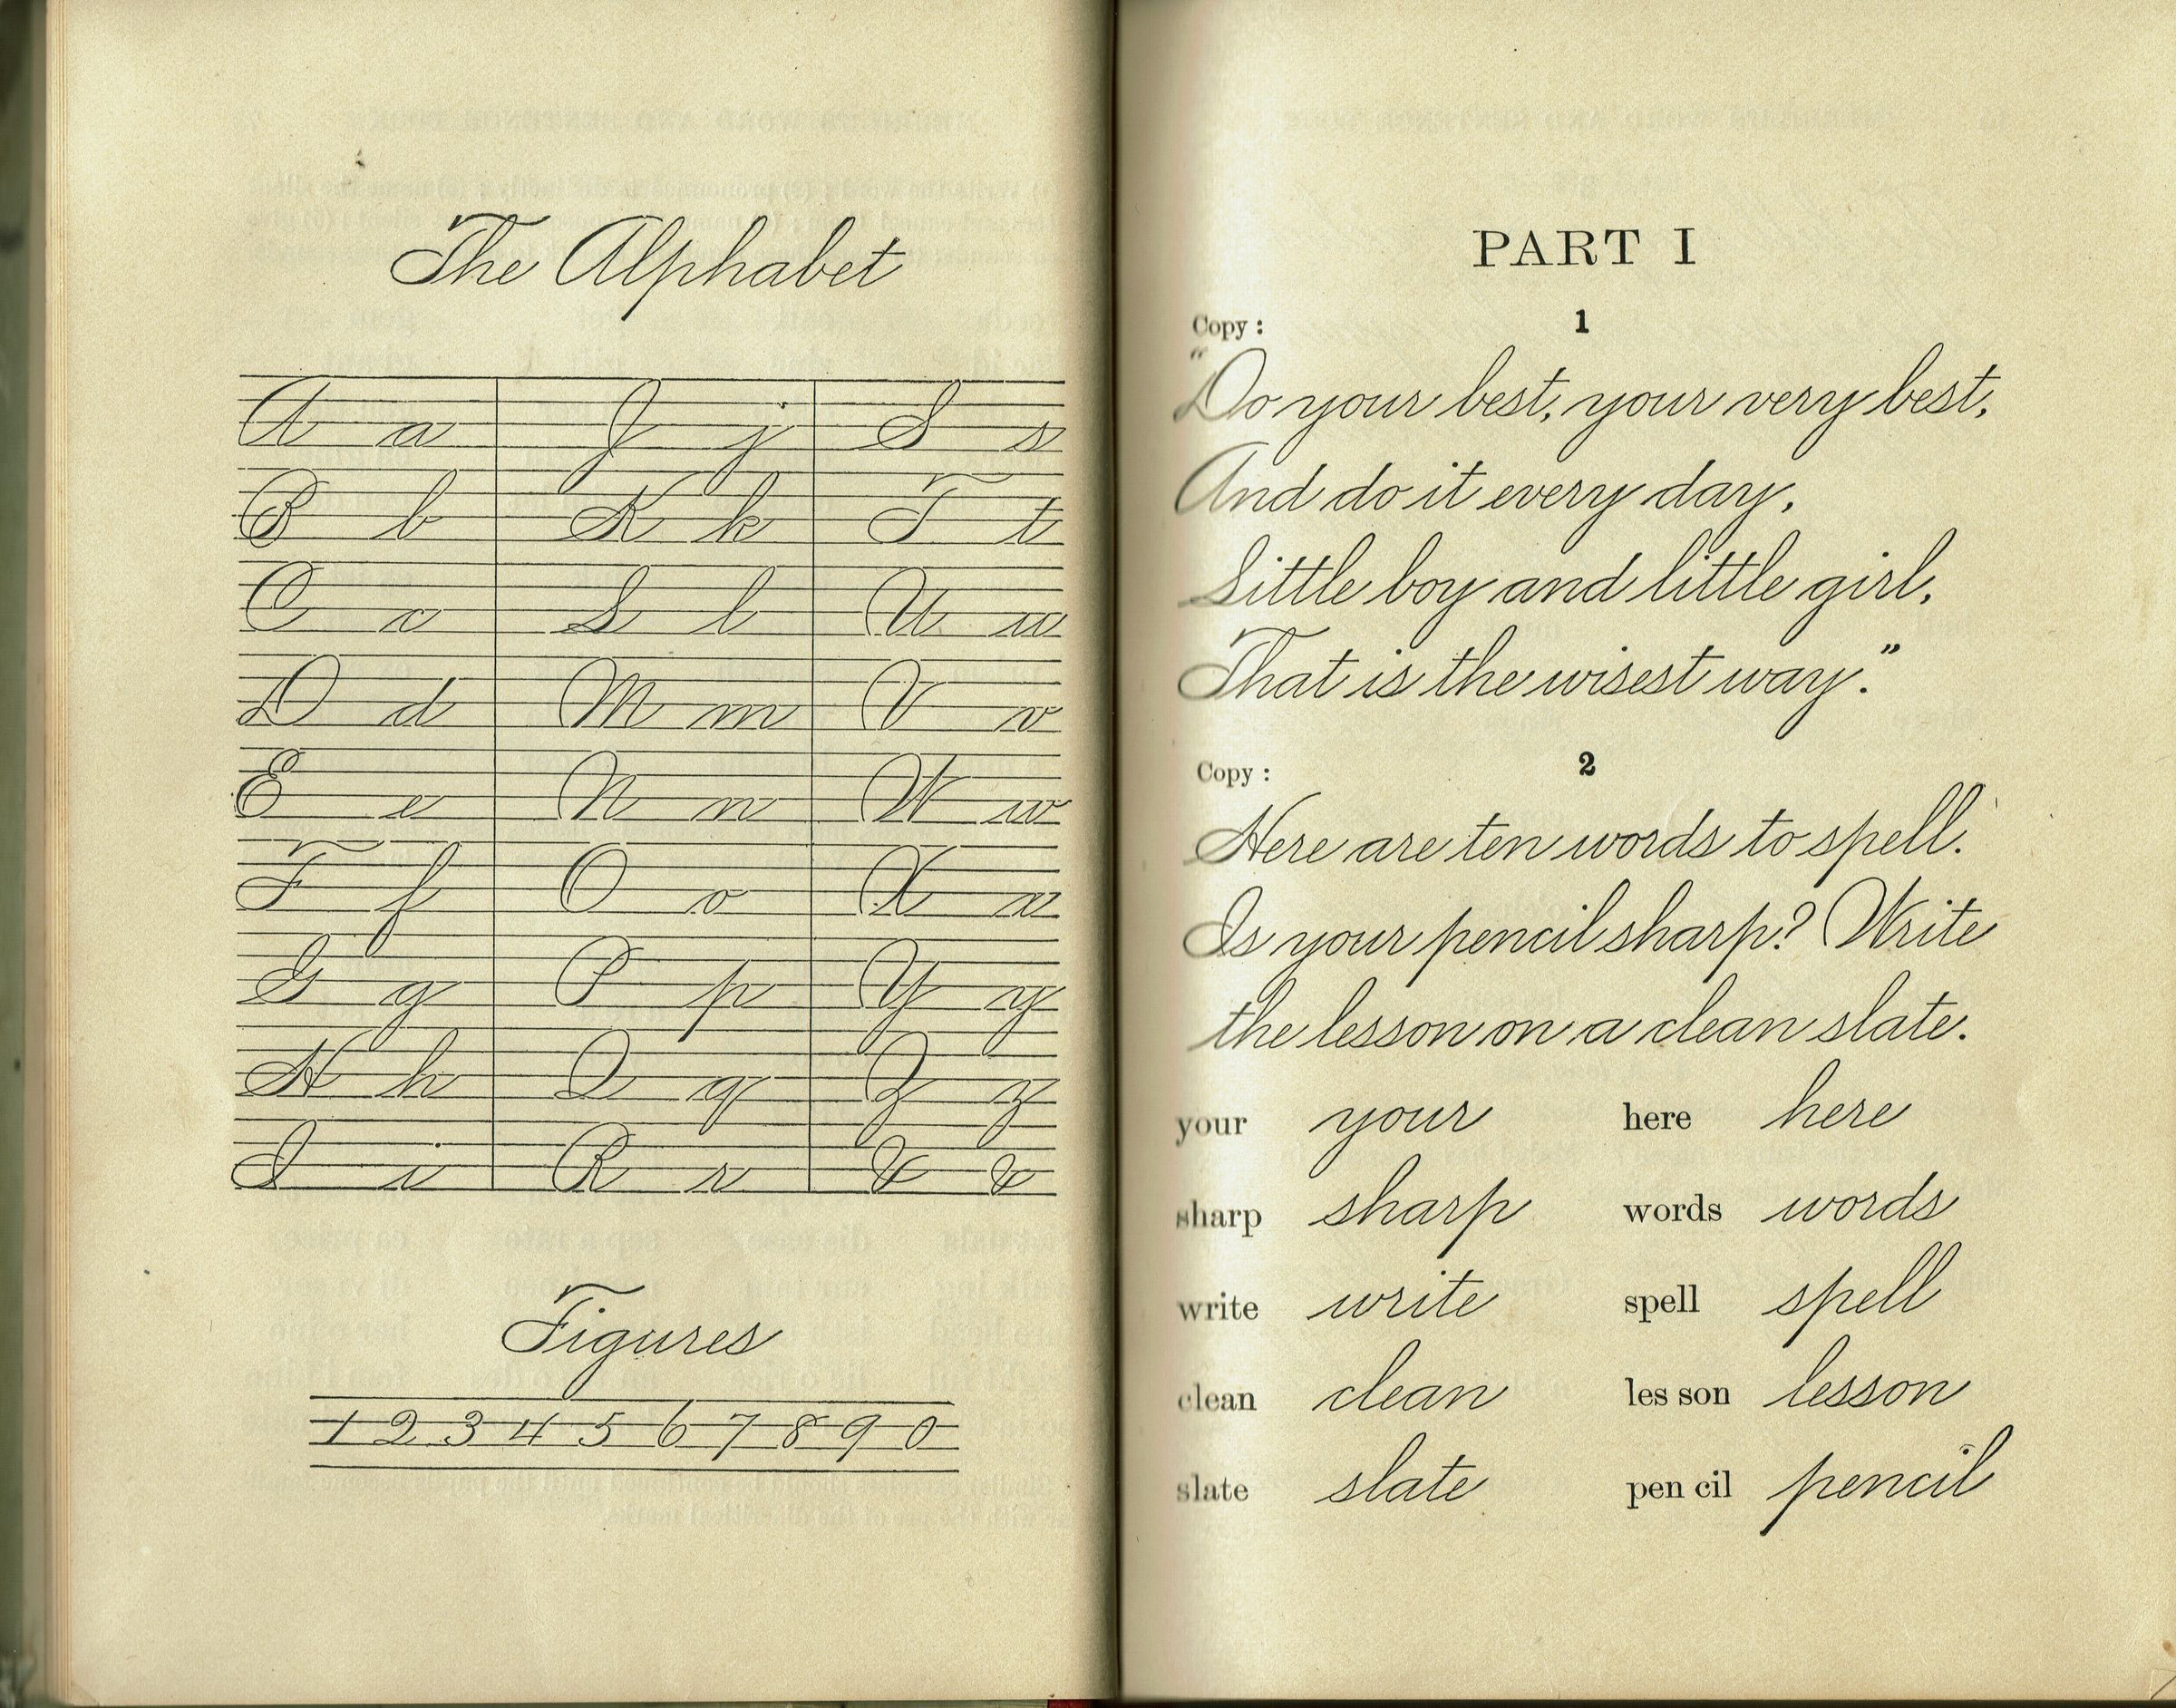 The Alphabet
A a J j S s
B b K k T t
C c L l U u
D d M m V v
E e N n W w
F f O o X x
G g P p Y y
H h Q q Z z
I i R r & &
Figures
1 2 3 4 5 6 7 8 9 0
PART I
Copy: 1
"Do your best, your very best,
And do it every day,
Little boy and little girl,
That is the wisest way."
Copy: 2
Here are ten words to spell.
Is your pencil sharp? Write
the lesson on a clean slate.
your your here here
sharp sharp words words
write write spell spell
clean clean les son lesson
slate slate pen cil pencil